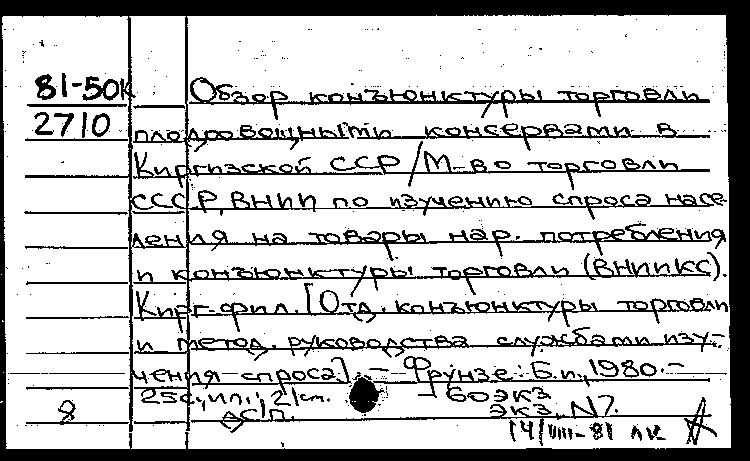 81-50к Обзор конъюнктуры торговли
2710 плодоовощными консервами в
Киргизской ССР/М-во торговли
СССР, ВНИИ по изучению спроса насе-
ления на товары нар. потребления
и конъюнктуры торговли (ВНИИКС).
Кирг. фил. [Отд. конъюнктуры торговли
и метод. руководства службами изу-
чения спроса]. – Фрунзе: Б.и., 1980. –
25с., ил.; 21см. – 60экз
8 ДСП. экз. N7.
14/VIII-81 лк